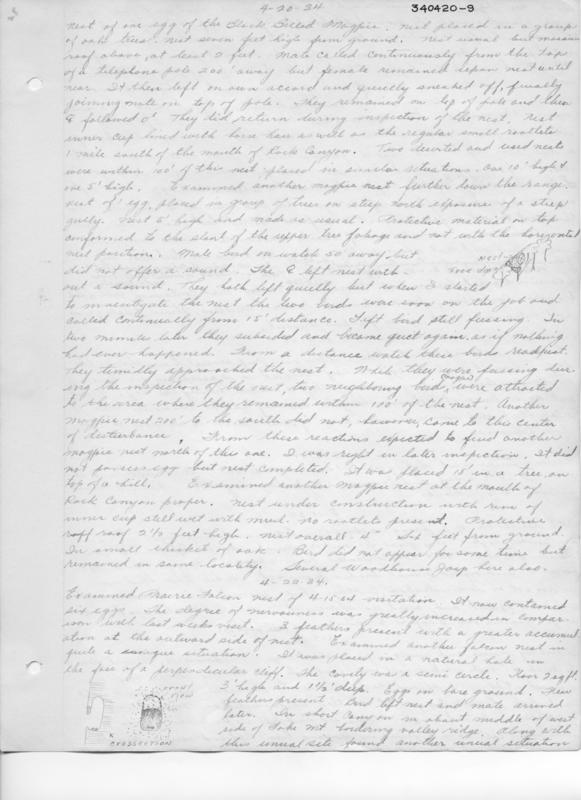 4-20-34 340420-9
nest of one egg of the Black Billed Magpie. Nest placed in a group
of oak trees. Nest seven feet high from ground. Nest usual but massive
roof above, at least 2 feet. Male called continuously from the top
of a telephone pole 200' away but female remained upon nest until
near. It then left on own accord and quietly sneaked off, finally
joining mate on top of pole. They remained on top of pole and then
♀ followed ♂. They did return during inspection of the nest. Nest
inner cup lined with horse hair as well as the regular small rootlets
1 mile south of the mouth of Rock Canyon. Two deserted and used nests
were within 100' of this nest placed in similar situations. One 10' high &
one 5' high. Examined another magpie nest further down the range.
nest of 1 egg, placed in group of trees on steep north exposure of a steep
gully. Nest 5' high and made as usual. Protective material on top
conformed to the slant of the upper tree foliage and not with the horizontal
nest position. Male bird on watch 50' away but
did not offer a sound. The ♀ left nest with
out a sound. They both left quietly but when I started
to investigate the nest the two birds were soon on the job and
called continually from 15' distance. Left bird still fussing. In
two minutes later they subsided and became quiet again as if nothing
had ever happened. From a distance watch these birds readjust.
They timidly approached the nest. While they were fussing dur-
ing the inspection of the nest, two neighboring birds (magpie) were attracted
to the area where they remained within 100' of the nest. Another
magpie nest 200' to the south did not, however, come to this center
of disturbance. From these reactions expected to find another
magpie nest north of this one. I was right in later inspection. It did
not possess egg but nest completed. It was placed 15' in a tree, on
top of a hill. Examined another Magpie nest at the mouth of
Rock Canyon proper. Nest under construction with rim of
inner cup still wet with mud. No rootlets present. Protective
roof 2½ feet high. Nest overall 4' Six feet from ground.
In small thicket of oak. Bird did not appear for some time but
remained in same locality. Several Woodhouse Jays here also.
4-22-34.
Examined Prairie Falcon nest of 4-15-34 visitation. It now contained
six eggs. The degree of nervousness was greatly increased in compar-
ison with last weeks visit. 3 feathers present with a greater accumul-
ation at the outward side of nest. Examined another falcon nest in
quite a unique situation. It was placed in a natural hole in
the face of a perpendicular cliff. The cavity was a semi circle. Floor 2 sq ft.
3' high and 1½' deep. Eggs on bare ground. Few
feathers present. Bird left nest and male arrived
later. In short canyon in about middle of west
side of Lake Mt. bordering valley ridge. Along with
this unusual site found another unusual situation
NEST
FRONT VIEW
CROSS SECTION